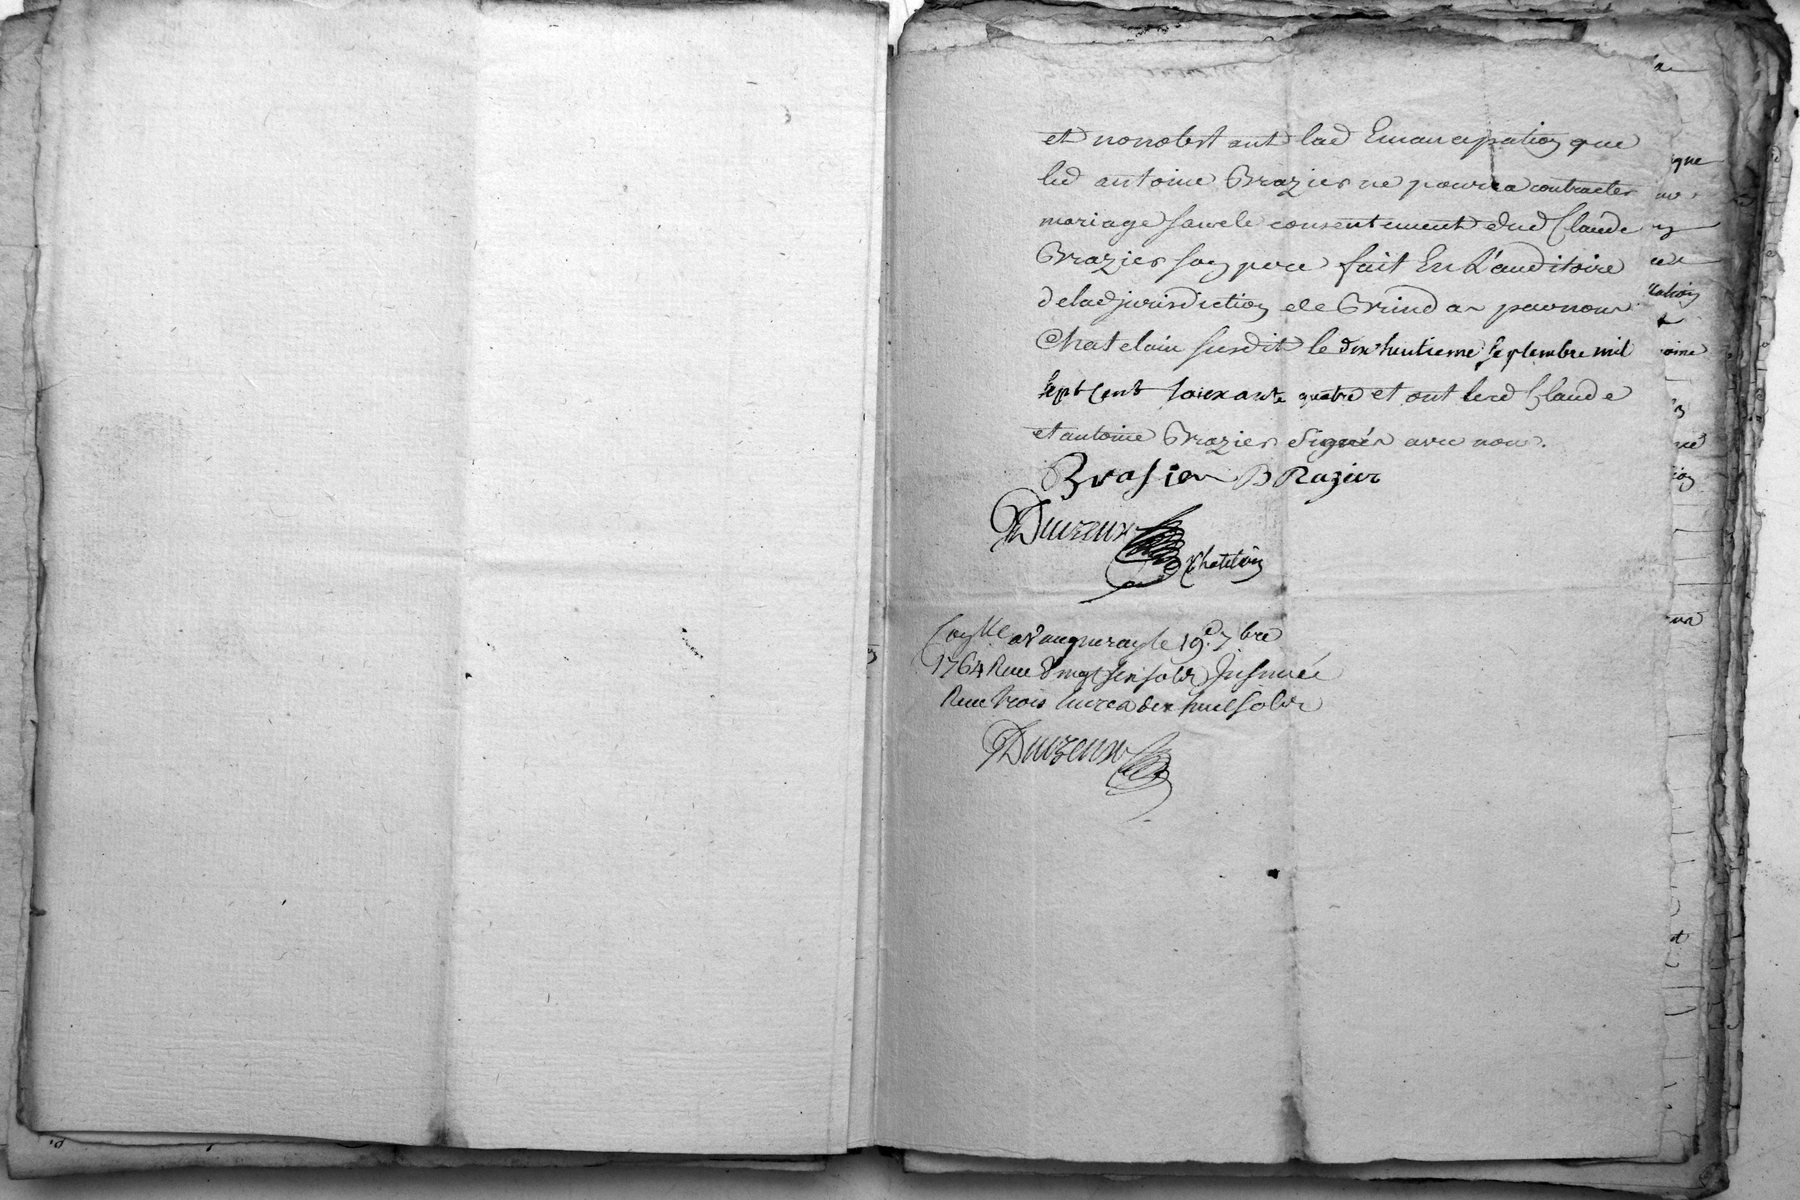 et nonobstant lad Emancipation que
led antoine Brazier ne pourra contracter
mariage sans le consentement dud Claude
Brazier son pere fait En L'auditoire
de lad jurisdiction de par nous
Chatelain susdit le dix huitieme septembre mil
sept cent soixante quatre et ont lesd Claude
et antoine Brazier signés avec nous.
Brasier BRazier
Duvzeux
Chatelain
Conlle a vaugneray le 19e 7bre
1764 Reçu vingt six sols Insinué
Reçu trois livres dix huit sols
Duvzeux